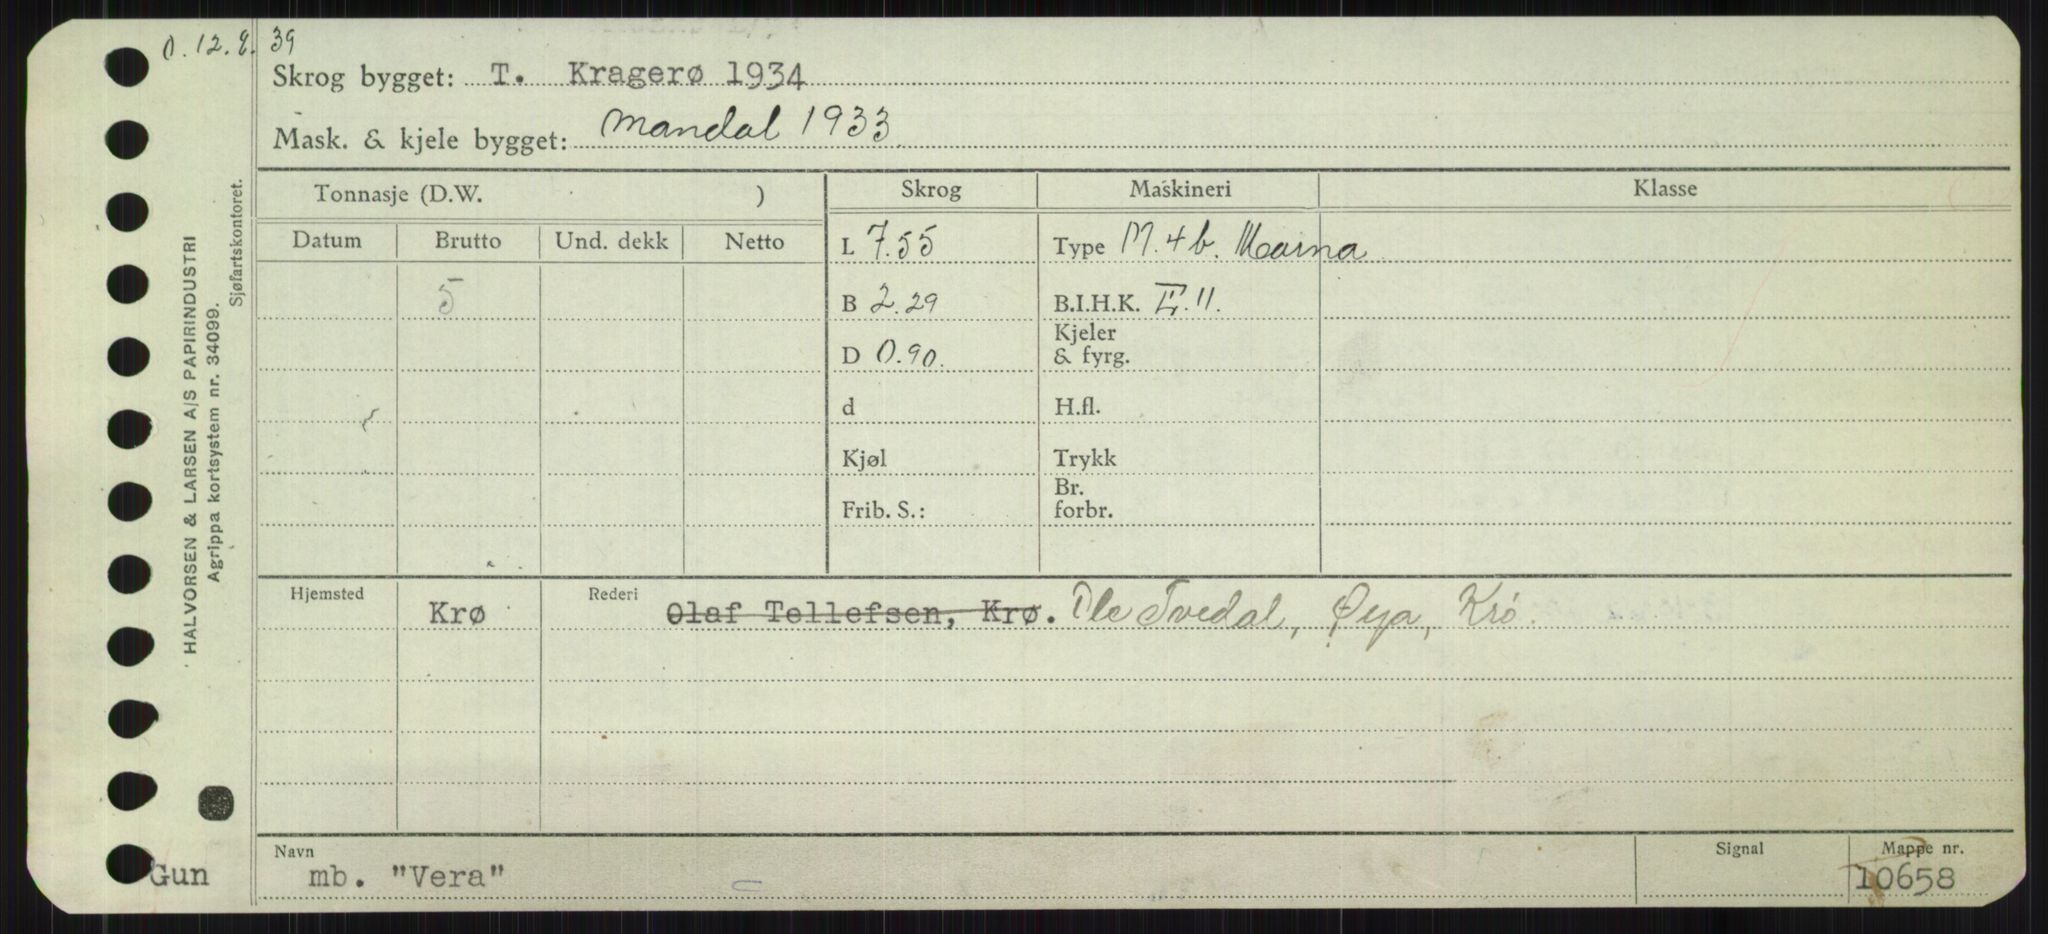 O. 12. 9. 39
Skrog bygget: T. Kragerø 1934
Mask. & kjele bygget: Mandal 1933
Tonnasje (D.W. )
Skrog Maskineri Klasse
Datum Brutto Und. dekk Netto
L 7.55 Type M. 4 b. Marna
5 B 2.29 B.I.H.K. II. 11.
D 0.90. Kjeler & fyrg.
d H.fl.
Kjøl Trykk
Frib. S.: Br. forbr.
Hjemsted Krø Rederi Olaf Tellefsen, Krø. Ole Tvedal, Øya, Krø.
Navn Signal Mappe nr.
Gun mb. "Vera" 10658
HALVORSEN & LARSEN A/S PAPIRINDUSTRI
Agrippa kortsystem nr. 34099.
Sjøfartskontoret.